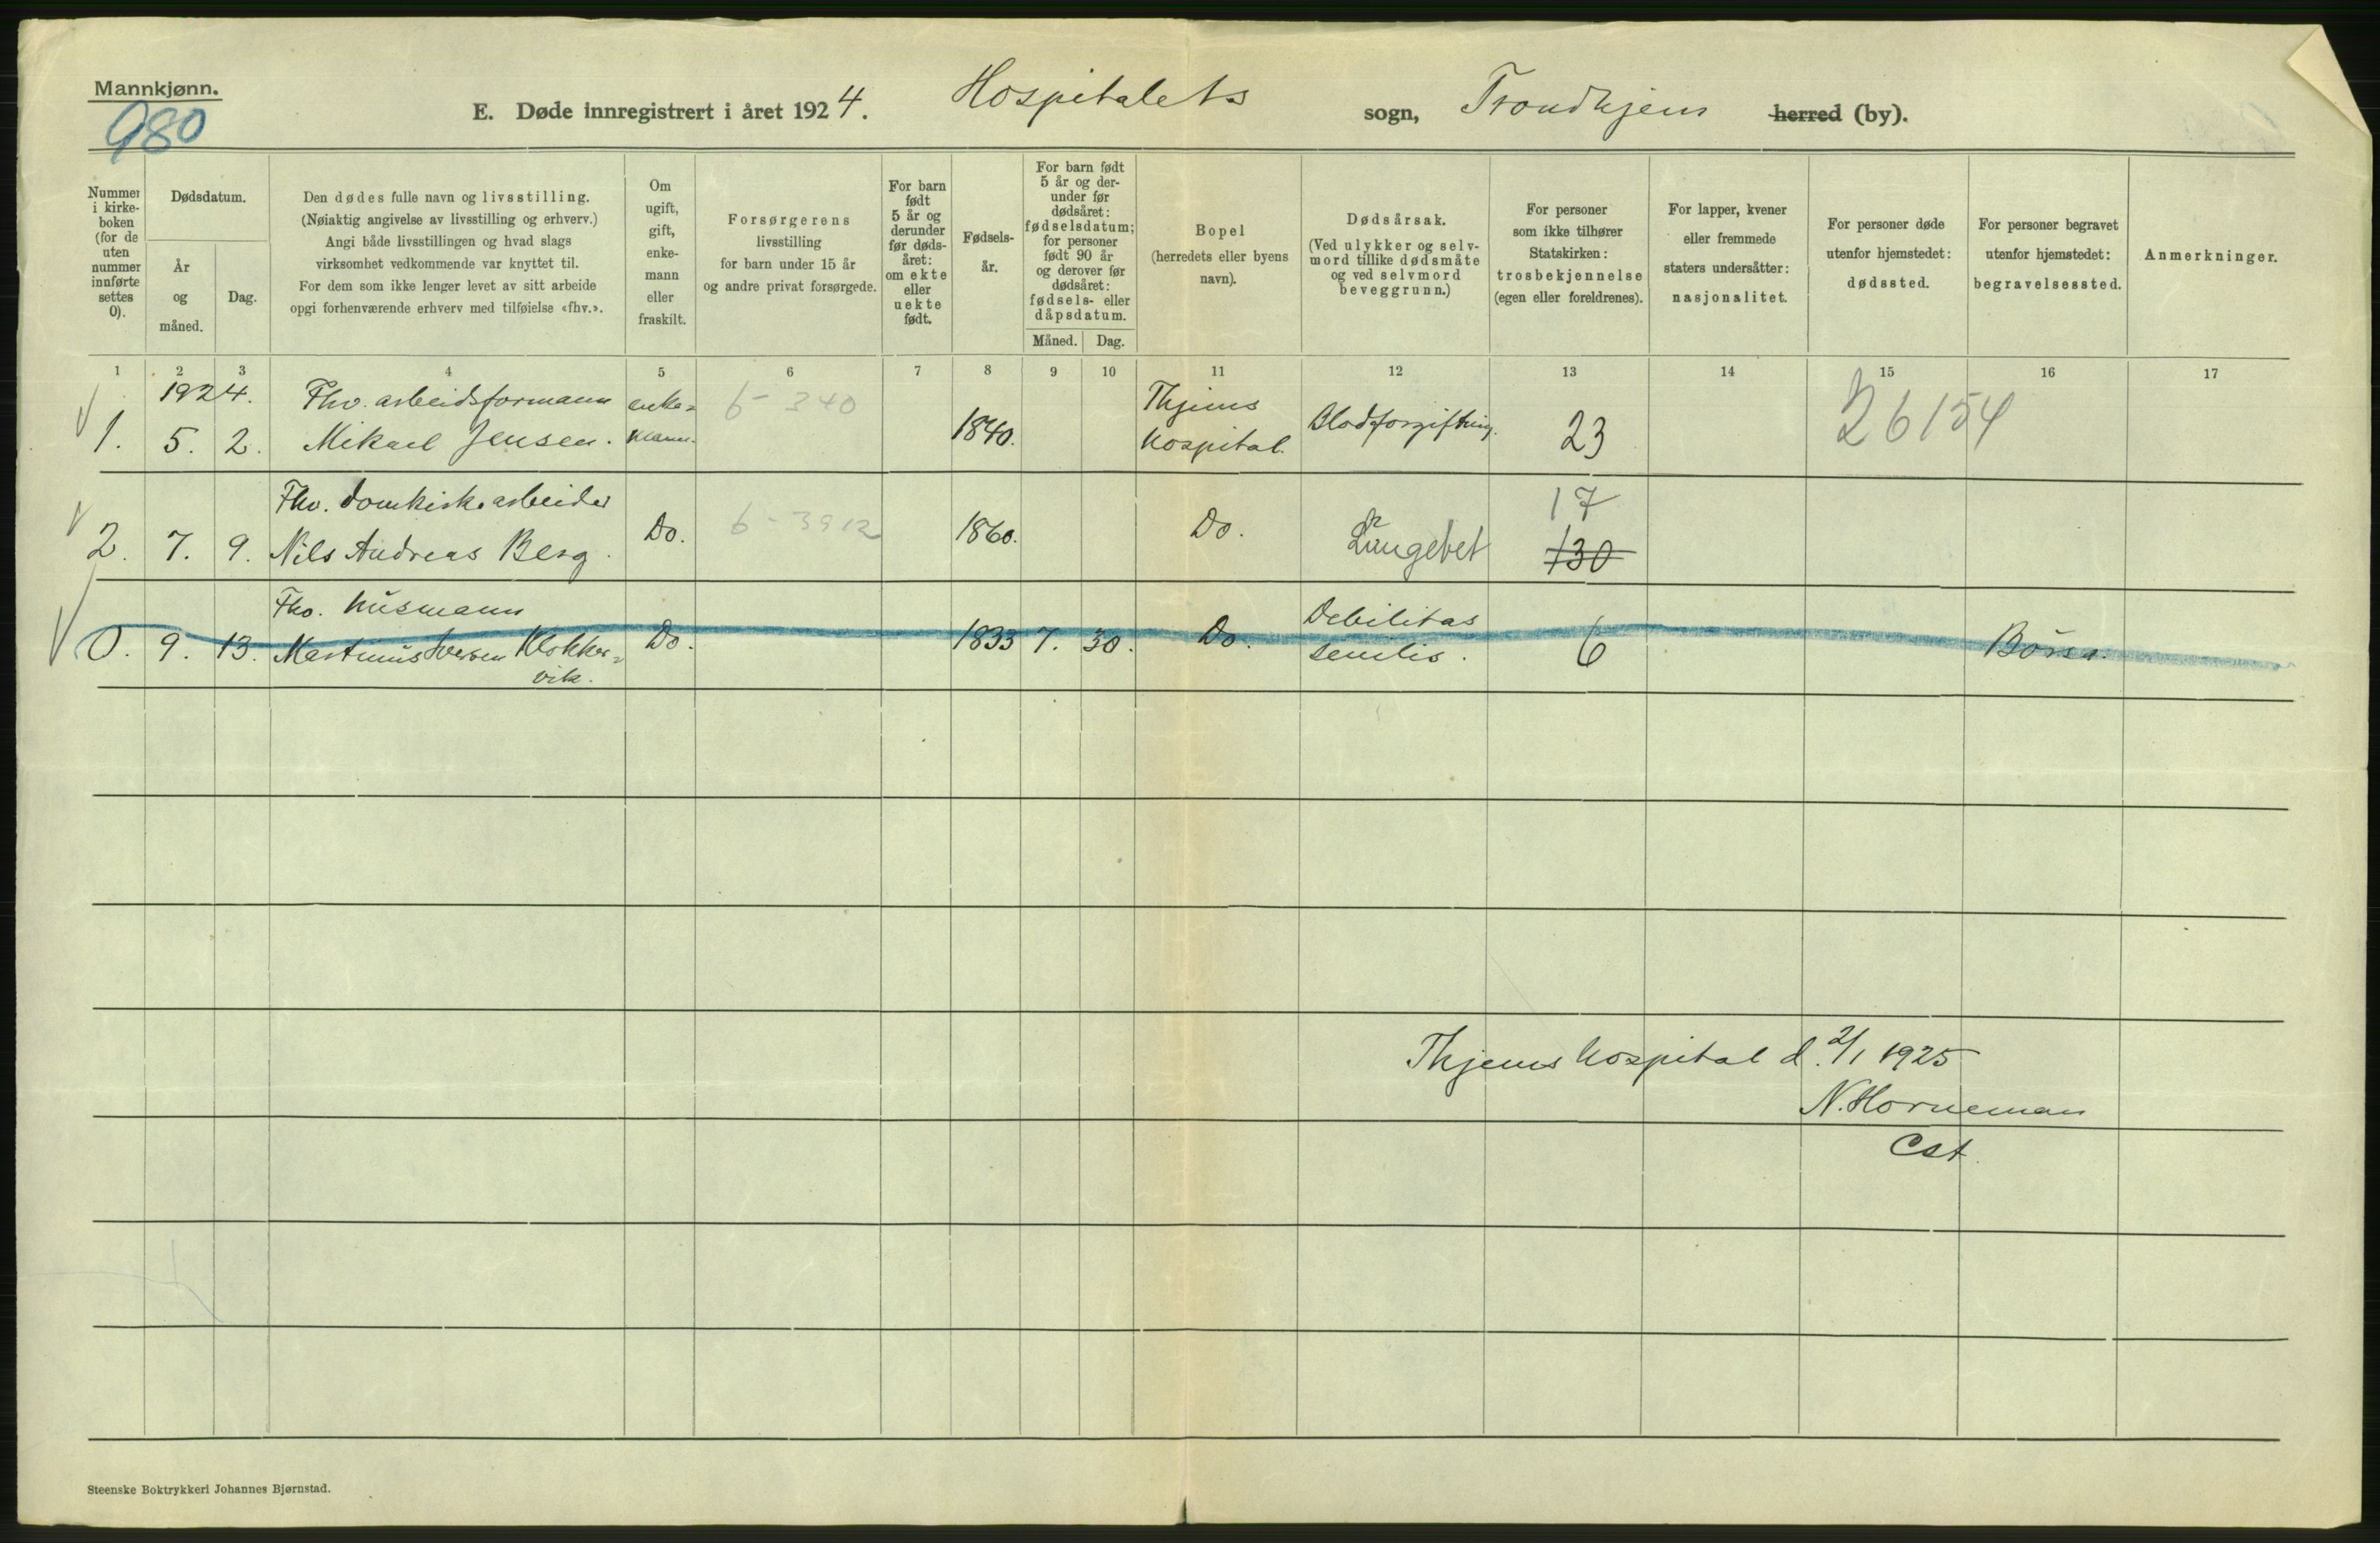 Mannkjønn.
980
E. Døde innregistrert i året 1924. Hospitalets sogn, Trondhjem herred (by).
Nummer i kirkeboken (for de uten nummer innførte settes 0).
Dødsdatum.
År og måned.
Dag.
Den dødes fulle navn og livsstilling.
(Nøiaktig angivelse av livsstilling og erhverv.)
Angi både livsstillingen og hvad slags
virksomhet vedkommende var knyttet til.
For dem som ikke lenger levet av sitt arbeide
opgi forhenværende erhverv med tilføielse «fhv.».
Om ugift, gift, enkemann eller fraskilt.
Forsørgerens
livsstilling
for barn under 15 år
og andre privat forsørgede.
For barn født 5 år og derunder før dødsåret: om ekte eller uekte født.
Fødselsår.
For barn født 5 år og derunder før dødsåret: fødselsdatum; for personer født 90 år og derover før dødsåret: fødsels- eller dåpsdatum.
Måned. Dag.
Bopel
(herredets eller byens
navn).
Dødsårsak.
(Ved ulykker og selvmord tillike dødsmåte og ved selvmord beveggrunn.)
For personer
som ikke tilhører
Statskirken:
trosbekjennelse
(egen eller foreldrenes).
For lapper, kvener
eller fremmede
staters undersåtter:
nasjonalitet.
For personer døde
utenfor hjemstedet:
dødssted.
For personer begravet
utenfor hjemstedet:
begravelsessted.
Anmerkninger.
1 2 3 4 5 6 7 8 9 10 11 12 13 14 15 16 17
1924. Fhv. arbeidsformann enke= 6 - 340 Thjems 26154
1. 5. 2. Mikael Jensen. mann. 1840. Hospital. Blodforgiftning. 23
Fhv. domkirkearbeider 17
2. 7. 9. Nils Andreas Berg. Do. 6 - 3912 1860. Do. Lungebet 130
Fhv. husmann Debilitas
0. 9. 13. Martinus Iversen Klokker= Do. 1833 7. 30. Do. senilis. 6 Börsa.
vik.
Thjems Hospital d. 2/1 1925
N. Horneman
Cst.
Steenske Boktrykkeri Johannes Bjørnstad.